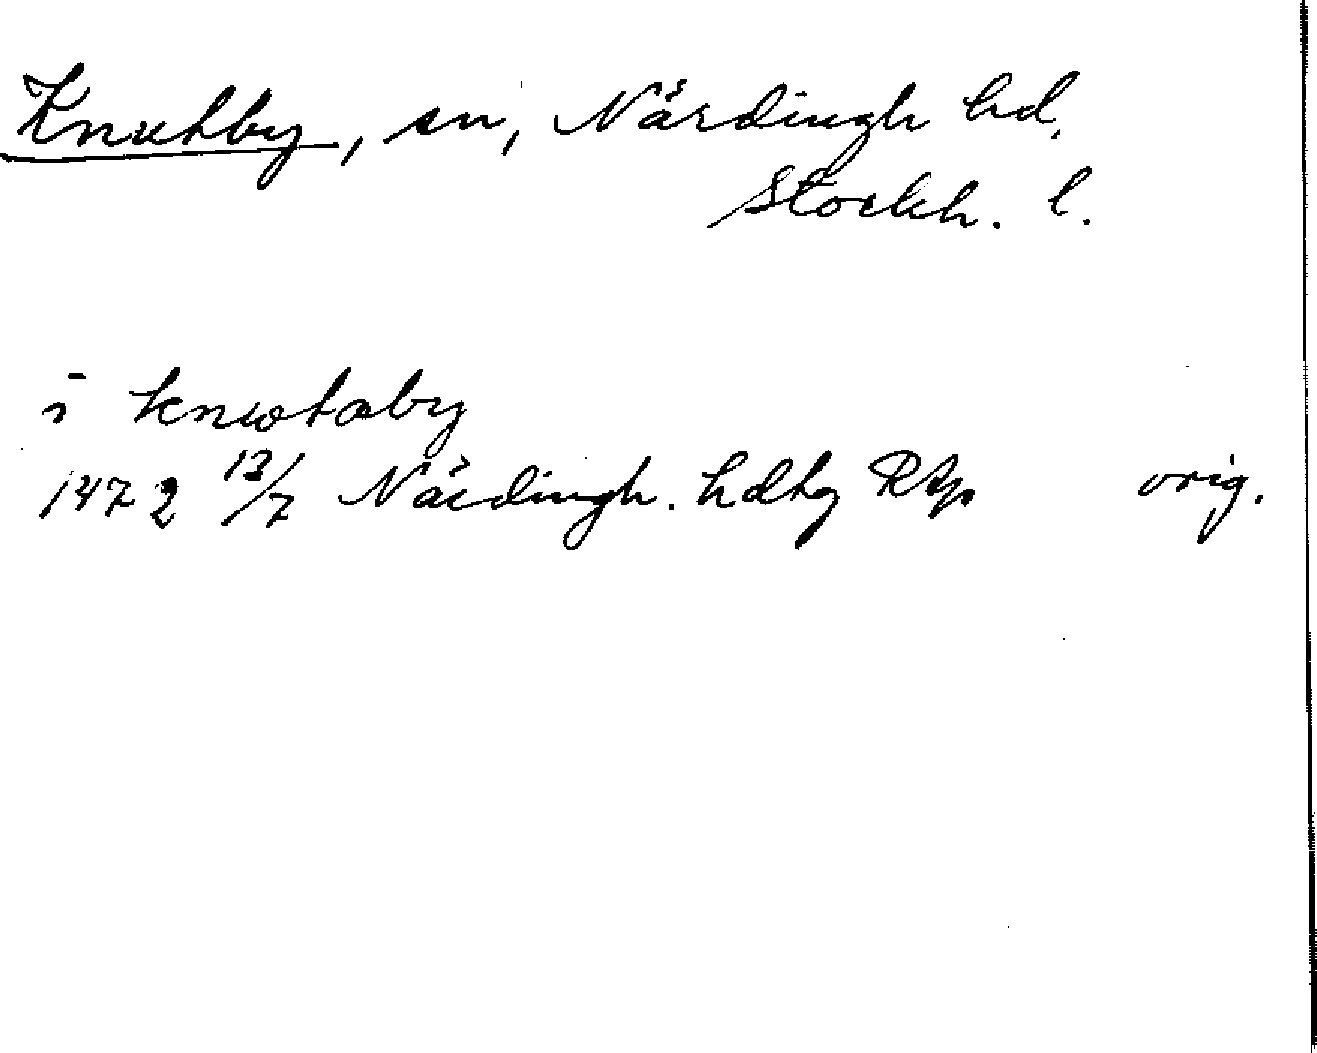 Knutby, sn, Närdingh hd,
Stockh. l.
i knwtaby
1472 13/7 Närdingh. hdtg Rap orig.